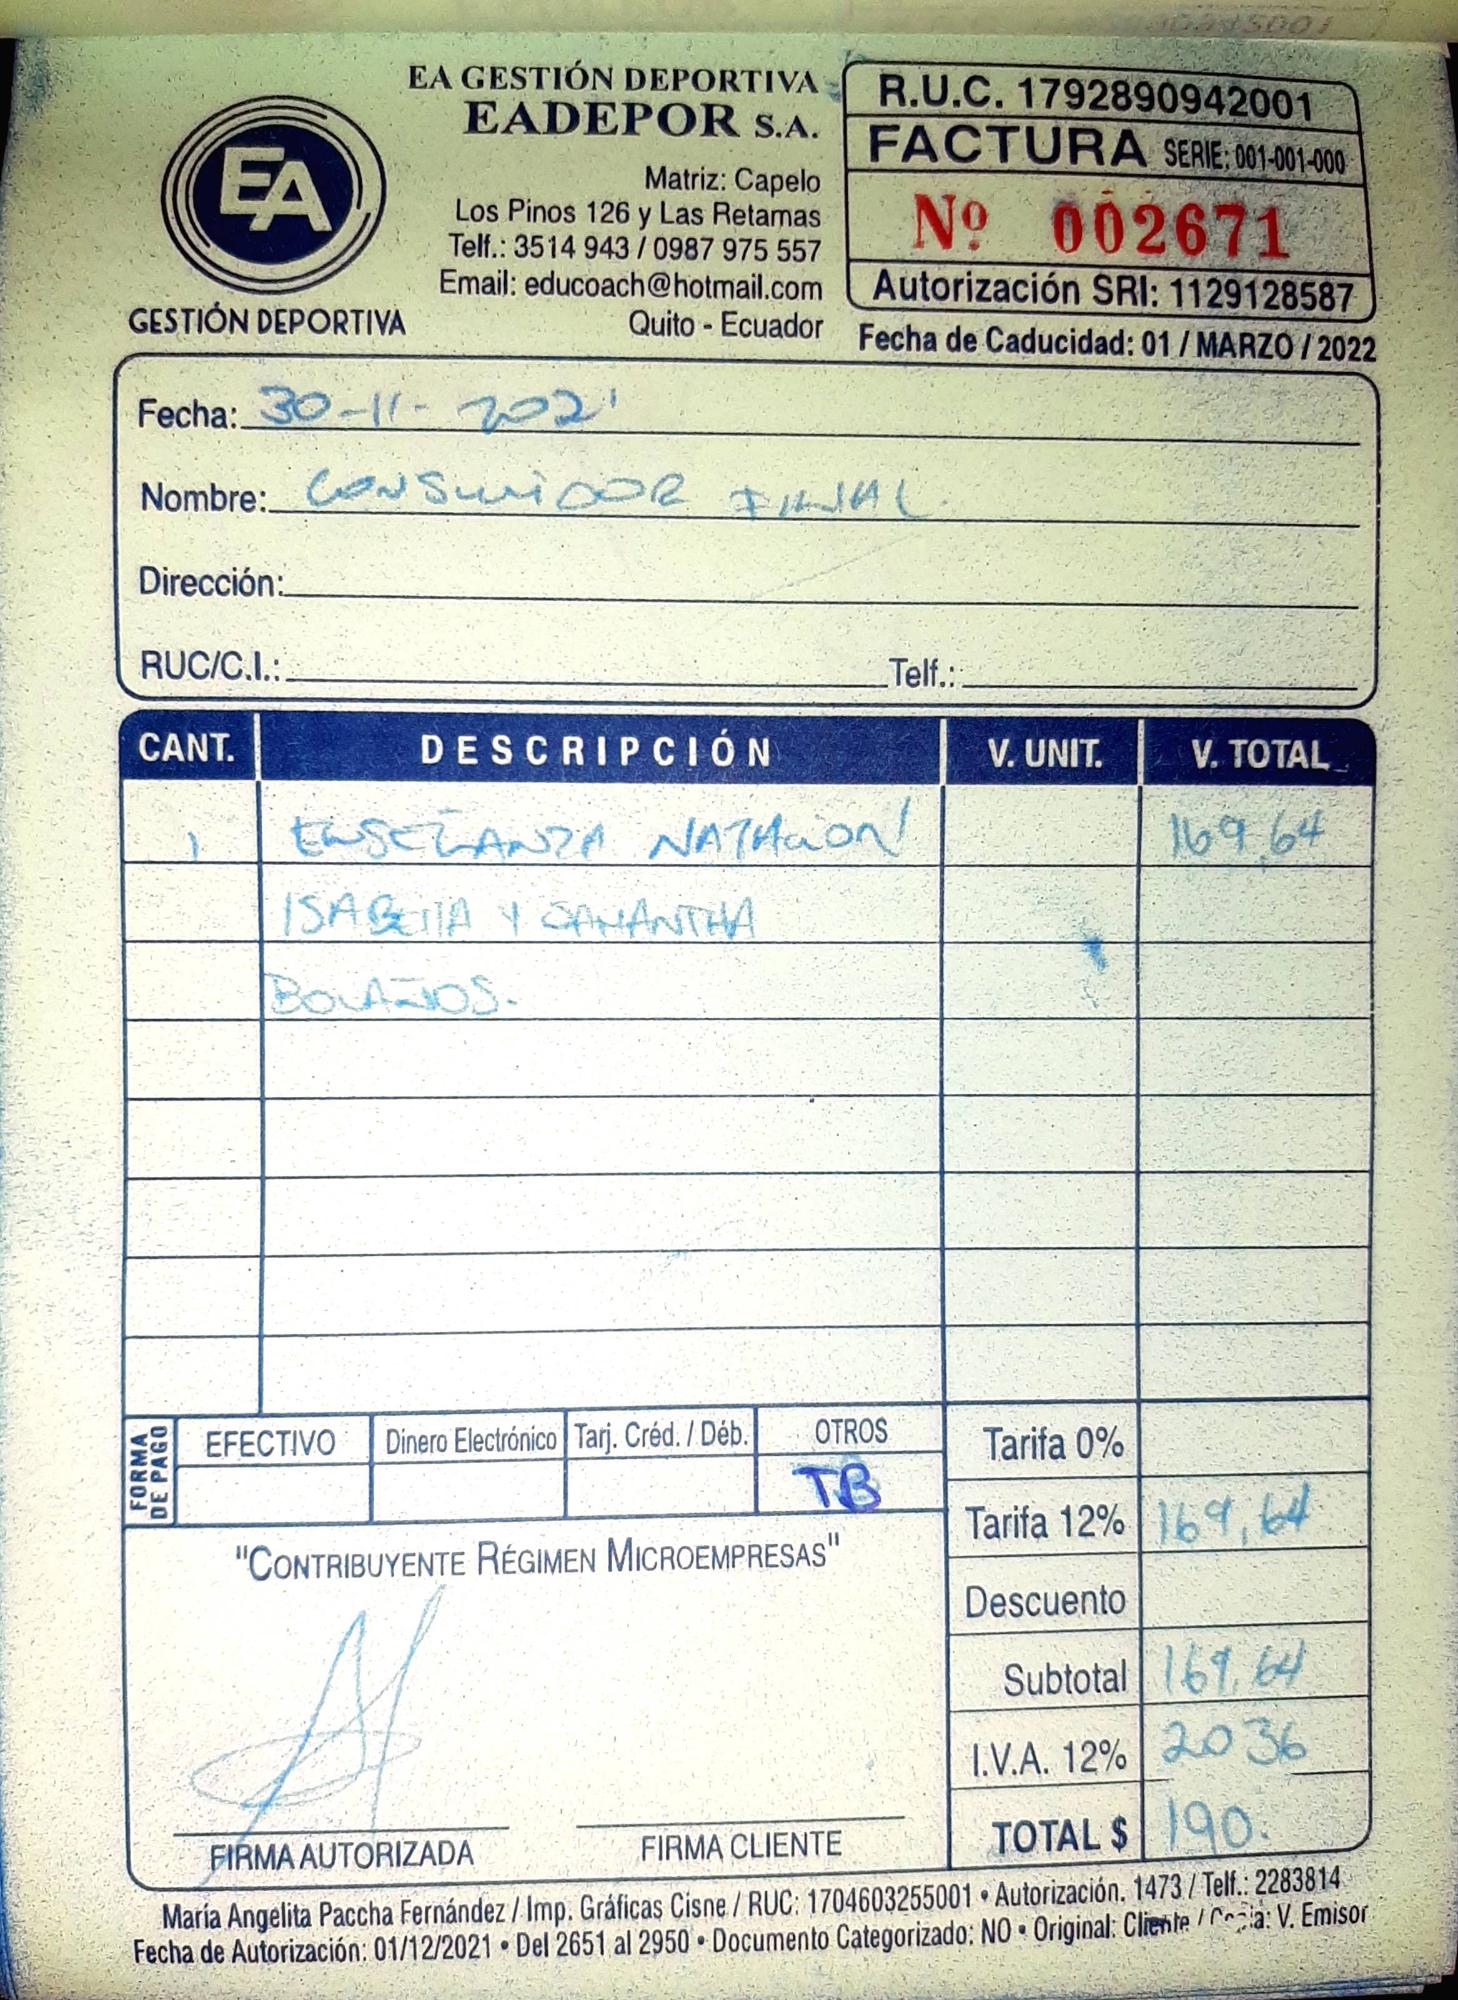 EA GESTIÓN DEPORTIVA
EADEPOR S.A.
Matriz: Capelo
Los Pinos 126 y Las Retamas
Telf.: 3514 943 / 0987 975 557
Email: educoach@hotmail.com
Quito - Ecuador
EA
GESTIÓN DEPORTIVA
R.U.C. 1792890942001
FACTURA SERIE: 001-001-000
Nº 002671
Autorización SRI: 1129128587
Fecha de Caducidad: 01 / MARZO / 2022
Fecha: 30-11-2021
Nombre: CONSUMIDOR FINAL
Dirección:
RUC/C.I.: Telf.:
CANT. DESCRIPCIÓN V. UNIT. V. TOTAL
1 ENSEÑANZA NATACION 169,64
ISABELLA Y SAMANTHA
BOLAÑOS.
FORMA DE PAGO
EFECTIVO Dinero Electrónico Tarj. Créd. / Déb. OTROS
TB
Tarifa 0%
Tarifa 12% 169,64
Descuento
Subtotal 169,64
I.V.A. 12% 20 36
TOTAL $ 190.
"CONTRIBUYENTE RÉGIMEN MICROEMPRESAS"
FIRMA AUTORIZADA FIRMA CLIENTE
María Angelita Paccha Fernández / Imp. Gráficas Cisne / RUC: 1704603255001 • Autorización. 1473 / Telf.: 2283814
Fecha de Autorización: 01/12/2021 • Del 2651 al 2950 • Documento Categorizado: NO • Original: Cliente / Copia: V. Emisor